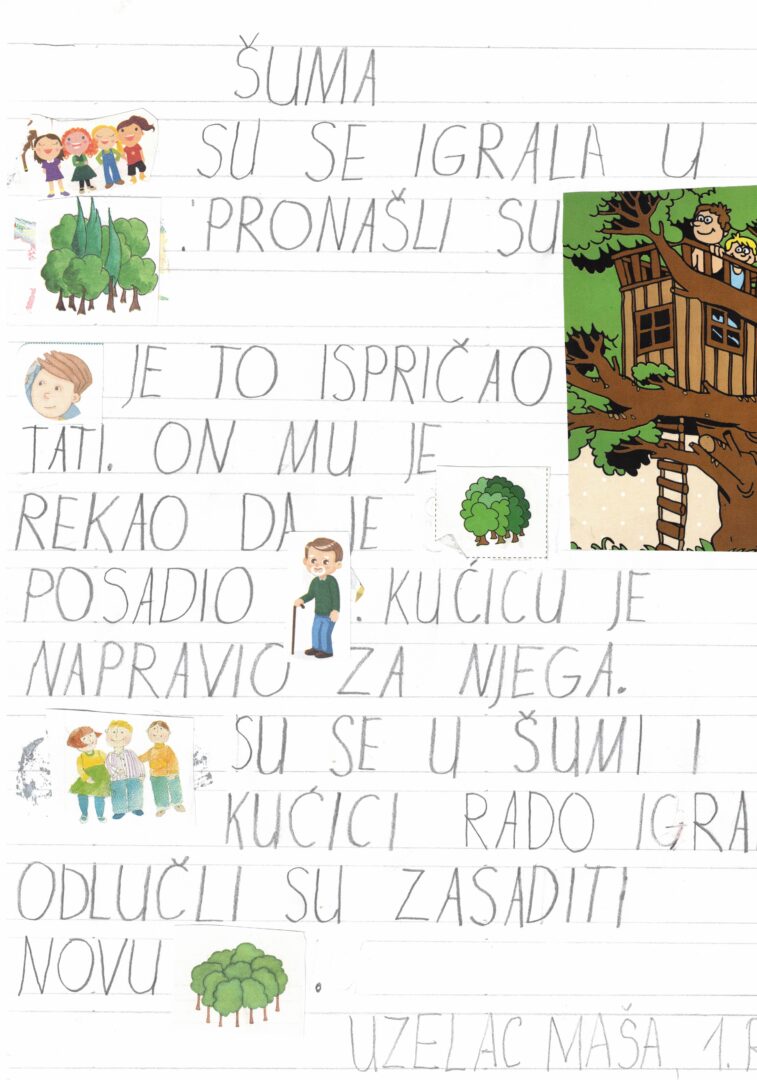 ŠUMA
SU SE IGRALA U
. PRONAŠLI SU
JE TO ISPRIČAO
TATI. ON MU JE
REKAO DA JE
POSADIO . KUĆICU JE
NAPRAVIO ZA NJEGA.
SU SE U ŠUMI I
KUĆICI RADO IGRA
ODLUČLI SU ZASADITI
NOVU .
UZELAC MAŠA, 1.